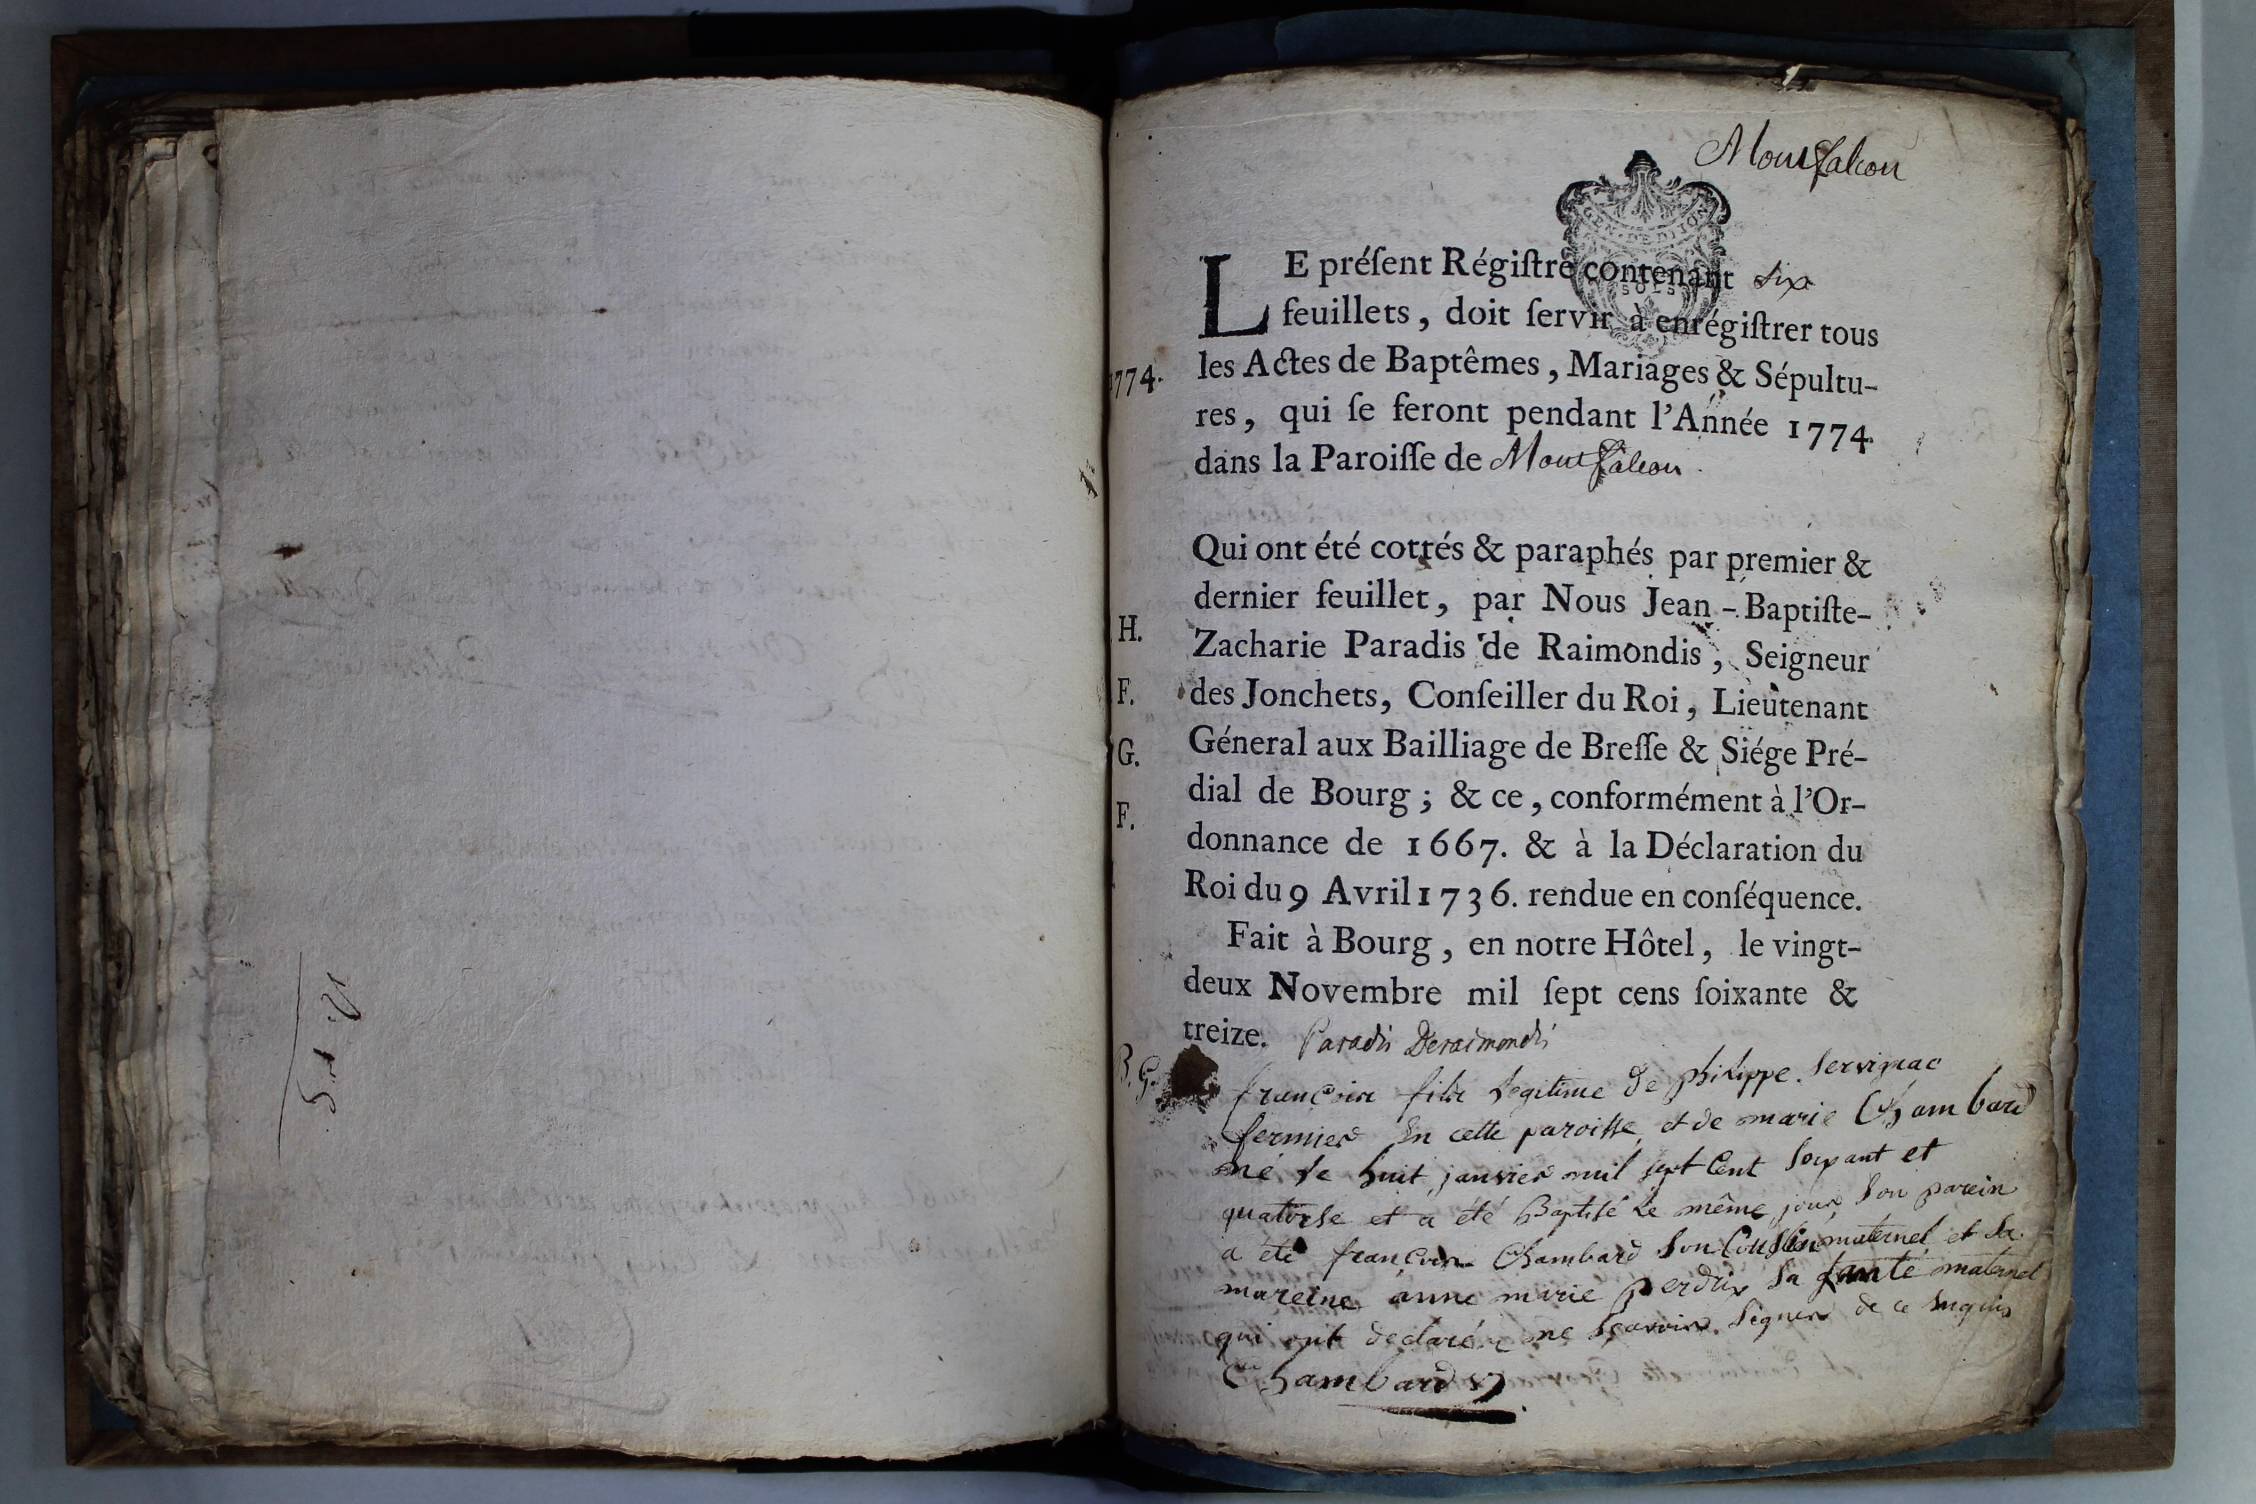 Montfalcon
GEN·DE DIJON
SOLS
LE préſent Régiſtre contenant six
feuillets, doit ſervir à enrégiſtrer tous
1774.
les Actes de Baptêmes, Mariages & Sépultu-
res, qui ſe feront pendant l'Année 1774.
dans la Paroiſſe de Montfalcon.
Qui ont été cottés & paraphés par premier &
dernier feuillet, par Nous Jean-Baptiſte-
H.
Zacharie Paradis de Raimondis, Seigneur
F.
des Jonchets, Conſeiller du Roi, Lieutenant
G.
Géneral aux Bailliage de Breſſe & Siége Pré-
dial de Bourg; & ce, conformément à l'Or-
F.
donnance de 1667. & à la Déclaration du
Roi du 9 Avril 1736. rendue en conſéquence.
Fait à Bourg, en notre Hôtel, le vingt-
deux Novembre mil ſept cens ſoixante &
treize. Paradis Deraimondis
B. G.
françois fils legitime de philippe. Servignac
fermier En cette paroisse et de marie Chambard
né le huit janvier mil sept Cent soixant et
quatorse et a été Baptisé le même jour, Son parein
a été françois Chambard Son Cousin maternel et Sa
mareine anne marie perdrix Sa tante maternel
qui ont declaré ne Sçavoir Signer de ce Enquis
Chambard